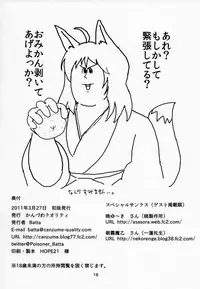 あれ？
もしかして
緊張してる？
おみかん剥いて
あげよっか？
なんかすみません…。
奥付
2011年3月27日　初版発行
発行　かんづめクオリティ
発行者　Batta
E-mail batta@canzume-quality.com
http://canzume.blog77.fc2.com/
twitter@Poisoner_Batta
印刷・製本　HOPE21　様
スペシャルサンクス（ゲスト掲載順）
さん（
http://asasora.web.fc2.com/
さん（一蓮托生）
http://nekorenge.blog38.fc2.com/
※18歳未満の方の所持閲覧を固く禁じます。
18